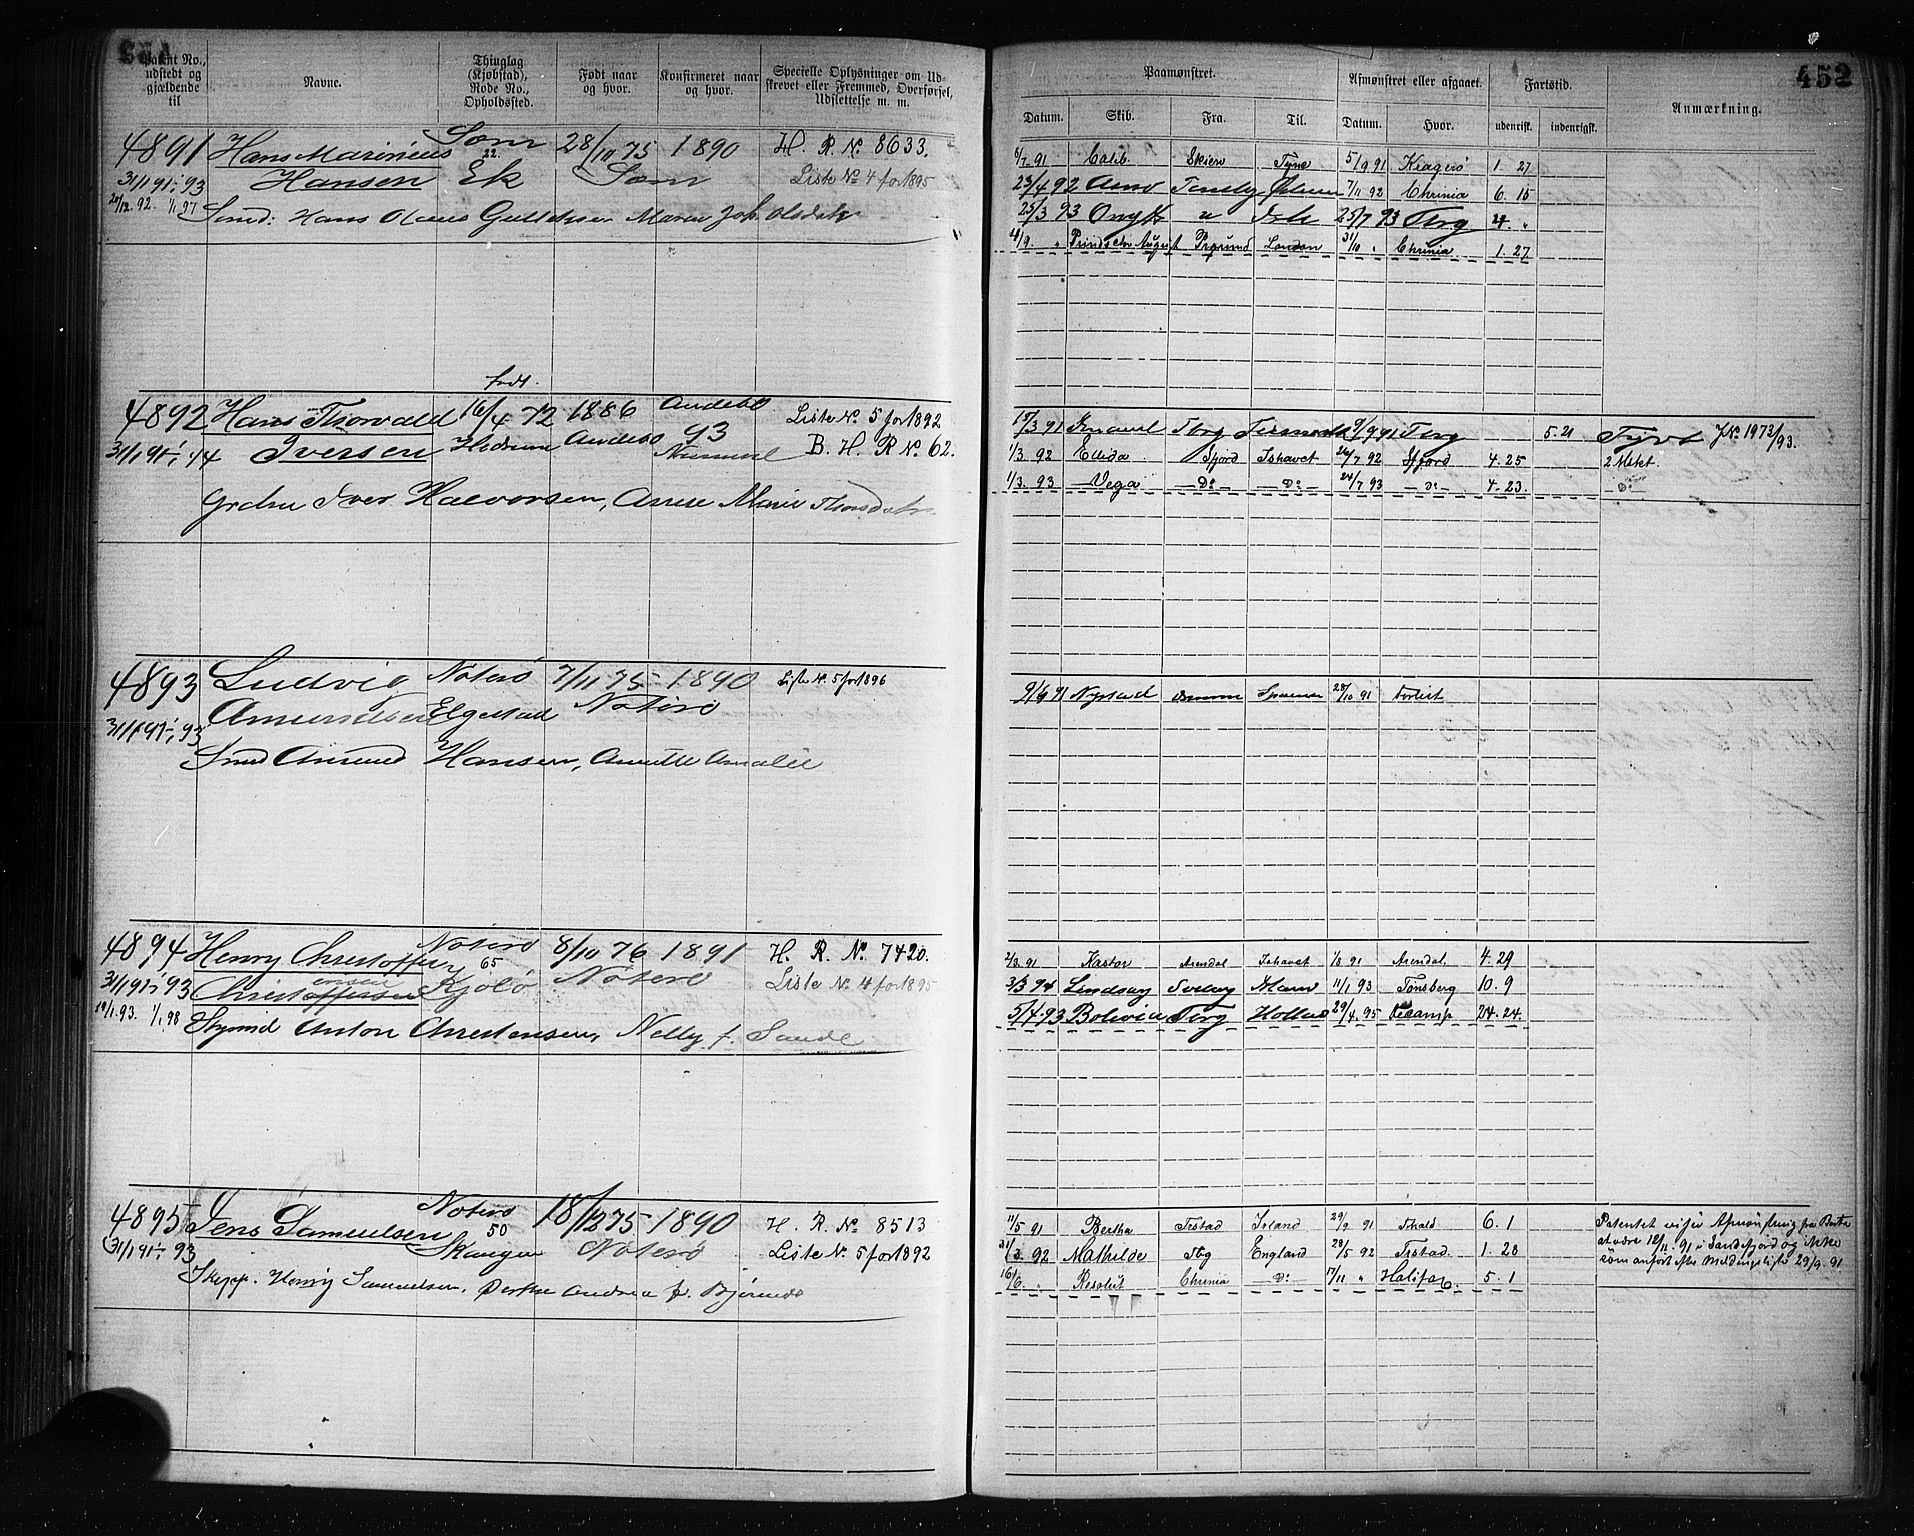 452
Patent No., udstedt og gjældende til
Navne.
Thinglag (Kjøbstad), Rode No., Opholdssted.
Født naar og hvor.
Konfirmeret naar og hvor.
Specielle Oplysninger om Udskrevet eller Fremmed, Overførsel, Udslettelse m. m.
4891 Hans Marinius Sæm 28/10 75 1890 H. R. No. 8633.
31/1 91-1/1 93 Hansen 22. Ek Sæm Liste No 4 for 1895
92. 1/1 97 Smed: Hans Olaus Maren Joh. Olsdatr
født.
4892 Hans Thorvald 16/4 72 1886 Andebo Liste No. 5 for 1892
31/1 91-1/1 94 Iversen Hedrum Andebo 93 B. H. R No. 62.
Grdbr Iver Halvorsen, Anne Marie
4893 Ludvig Nøterø 7/11 75 1890 Liste No. 5 for 1896
31/1 91-1/1 93 Amundsen Elgestad Nøterø
Smed Amund Hansen, Anette Amalie
4894 Henry Christoffer Nøterø 8/10 76 1891 H. R. No. 7420.
31/1 91-1/1 93 Christoffersen 65 Kjøbø Nøterø Liste No 4 for 1895
19/1.93. 1/1 98 Styrmd Anton Christensen, Nelly f. Sande
4895 Jens Samuelsen Nøterø 18/12 75 1890 H. R. No 8513
31/1 91-1/1 93 50 Nøterø Liste No. 5 for 1892
Skipp. Henry Samuelsen, Andrea f. Bjørnes
452
Paamønstret.
Afmønstret eller afgaaet.
Fartstid.
Anmærkning.
Datum. Skib. Fra. Til. Datum. Hvor. udenrigst. indenrigst.
6/7 91 Calib. Skien Tyne 5/9 91 Kragerø 1. 27
23/4 92 Arno 7/11 92 Chrinia 6. 15
25/3 93 25/7 93 Tbrg 4. "
4/9. " Prinds Aug Prsund London 31/10 " Chrinia. 1. 27
15/3 91 Tbrg 9/9 91 Tbrg 5. 21 Tjvt JNo. 1973/93.
1/3 92 Ellida Sfjord Ishavet 26/7 92 Sfjord 4. 25 2 Mdr.
1/3. 93 Vega Do Do 24/7 93 Do 4. 23. Do
9/9 91 Nystad 28/10 91 Forlist
2/3. 91 Kastor Arendal Ishavet 1/8 91 Arendal. 4. 29
Lindsay Svelvig 11/1 93 Tønsberg 10. 9
5/4 93 Bolivia Tbrg Holland 29/4 95 Fecamp 24. 24
11/5 91 Bertha Frstad Island 29/9 91 Frhald 6. 1
31/3. 92 Mathilde Tbg England 28/5 92 Frstad. 1. 28
16/6. " Resolut Chrinia Do 17/11 " Halifax. 5. 1
Patentet viser Afmønstring fra Berta
at være 12/11. 91 i Sandefjord og ikke
som anført efter Meldingsliste 29/9. 91